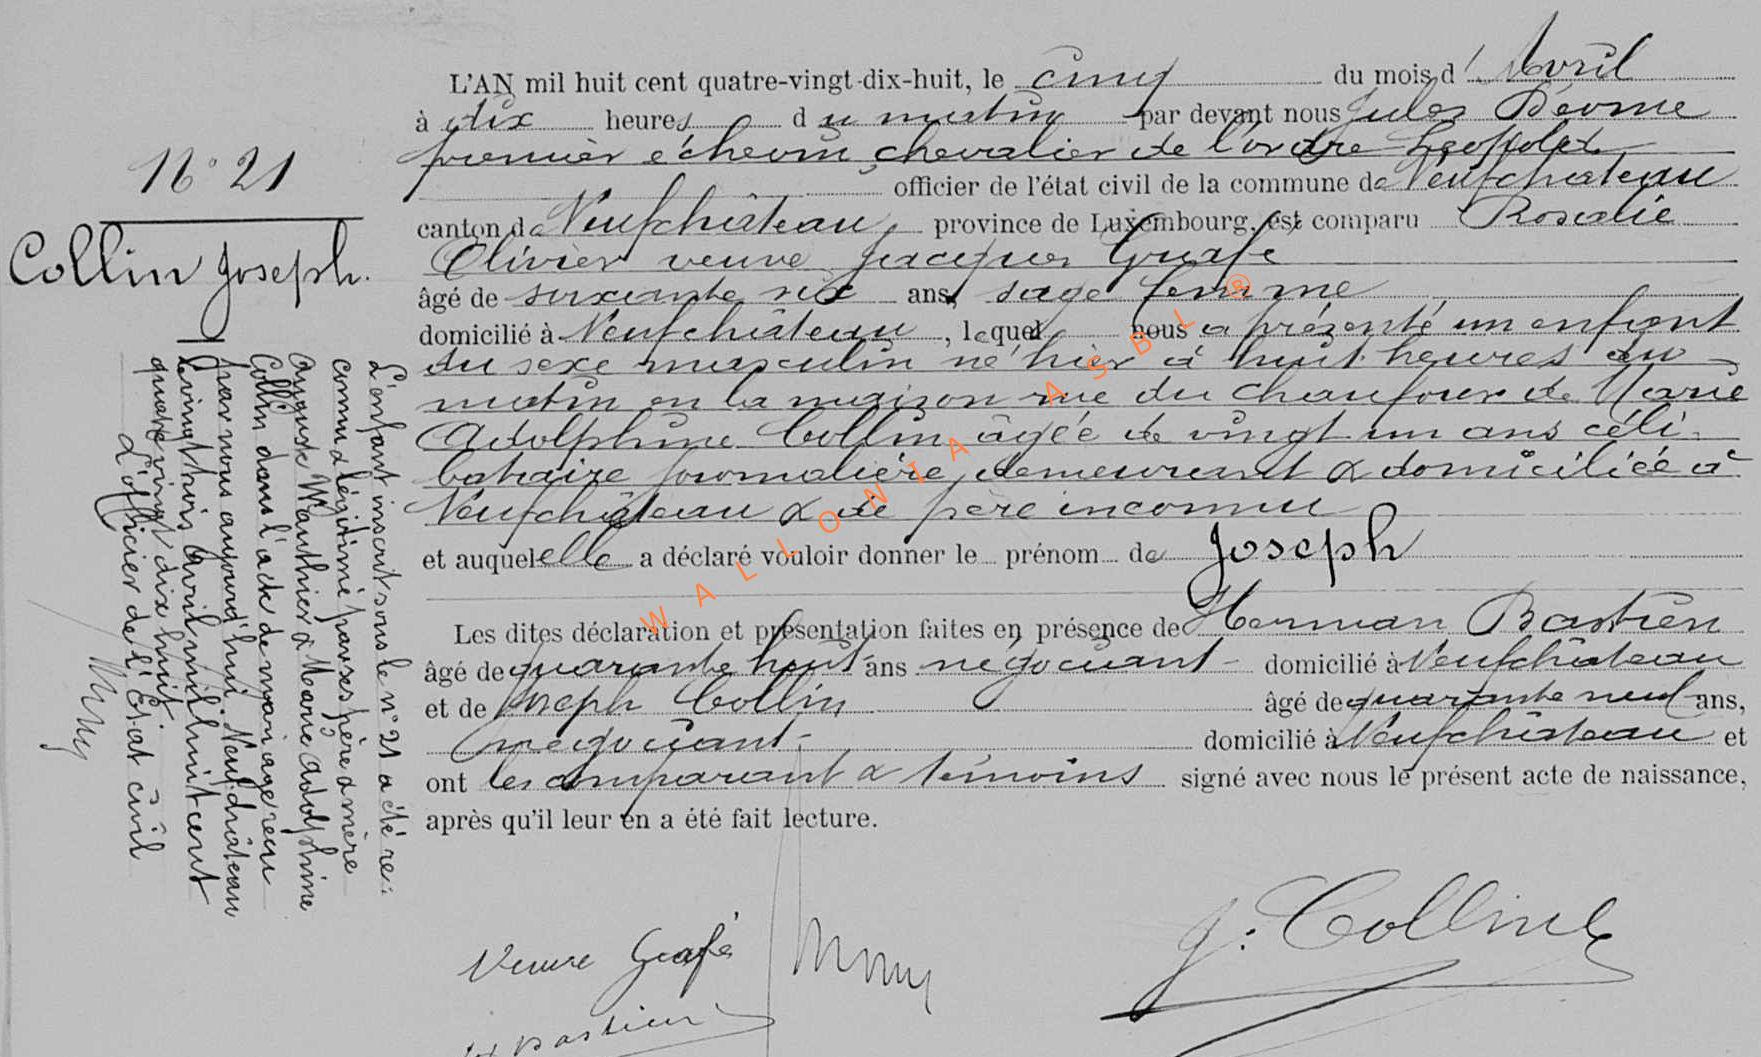 N° 21
Collin Joseph.
L'AN mil huit cent quatre-vingt-dix-huit, le cinq du mois d'Avril
à dix heures du matin par devant nous Jules
premier échevin chevalier de l'ordre Léopold
officier de l'état civil de la commune de Neufchâteau
canton de Neufchâteau province de Luxembourg, est comparu Rosalie
Olivier veuve Jacques Grafé
âgé de soixante six ans, sage femme
domicilié à Neufchâteau, lequel nous a présenté un enfant
du sexe masculin né hier à huit heures du
matin en la maison rue du Chaufour de Marie
Adolphine Collin âgée de vingt un ans céli-
bataire journalière demeurant & domiciliée à
Neufchâteau & de père inconnu
et auquel elle a déclaré vouloir donner le prénom de Joseph
Les dites déclaration et présentation faites en présence de Herman Bastien
âgé de quarante huit ans négociant domicilié à Neufchâteau
et de Joseph Collin âgé de quarante neuf ans,
négociant domicilié à Neufchâteau et
ont les comparant & témoins signé avec nous le présent acte de naissance,
après qu'il leur en a été fait lecture.
L'enfant inscrit sous le n° 21 a été re-
connu & légitimé par ses père & mère
Auguste Wauthier & Marie Adolphine
Collin dans l'acte de mariage reçu
par nous aujourd'hui. Neufchâteau
le vingt trois Avril mil huit cent
quatre vingt dix huit
L'officier de l'Etat civil
Veuve Grafé
J. Collin
Bastien
WALLONIA ASBL ®